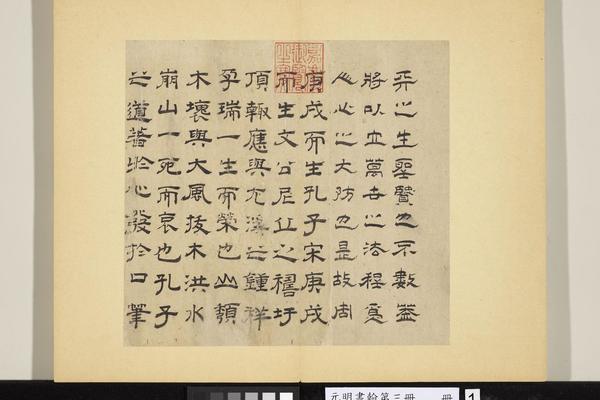 天之生聖賢也不數蓋
將以立萬世之法程爲
人心之大防也是故周
庚戌而生孔子宋庚戌
而生文公尼丘之禱圩
頂輒應與尤溪之鍾祥
孕瑞一生而榮也山頹
木壞與大風拔木洪水
崩山一死而哀也孔子
之道著於心發於口筆
元明書翰第三冊 冊 1